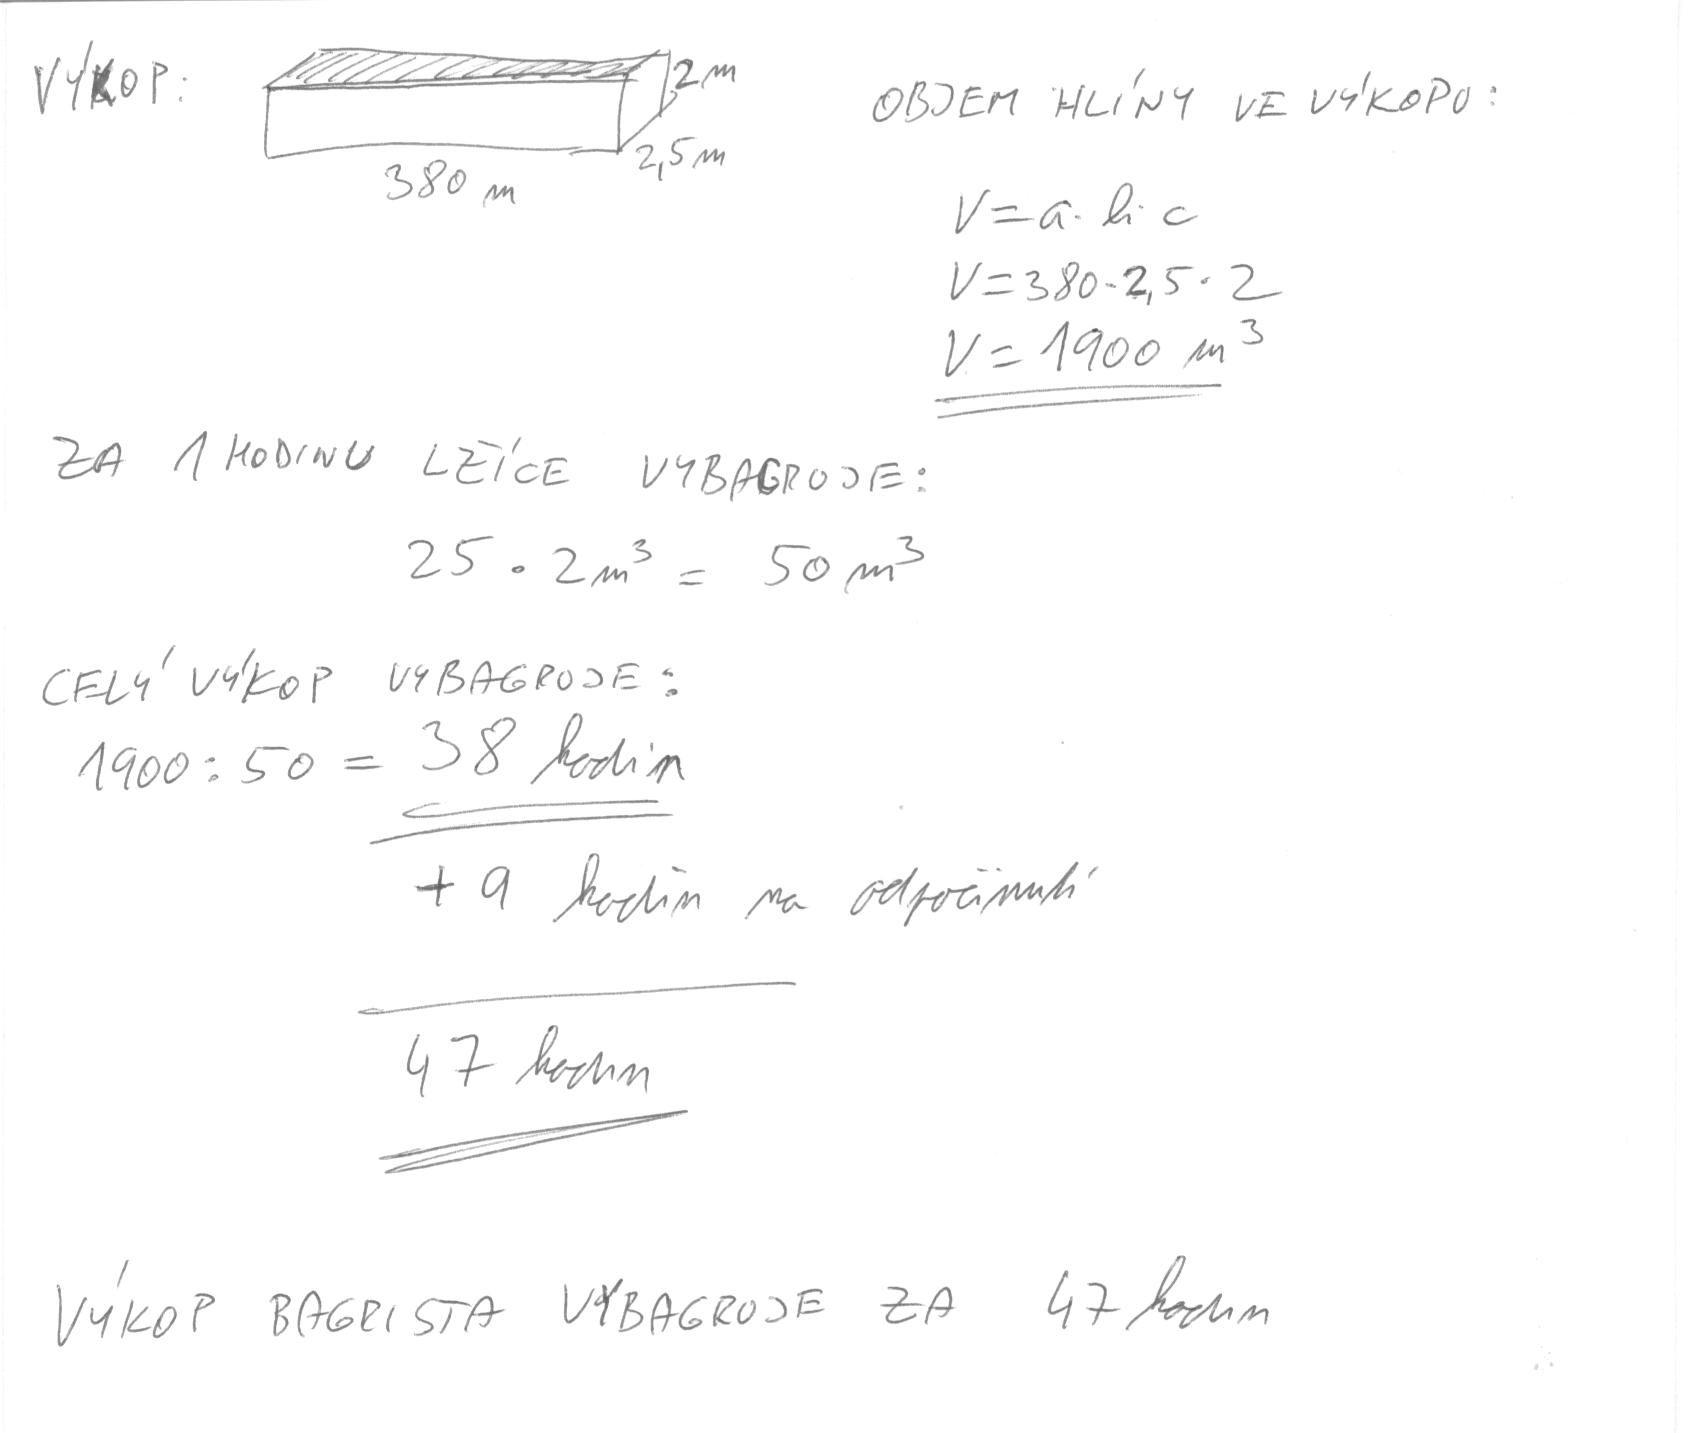 VÝKOP:
2 m
2,5 m
380 m
OBJEM HLÍNY VE VÝKOPU:
V = a · b · c
V = 380 · 2,5 · 2
V = 1900 m³
ZA 1 HODINU LŽÍCE VYBAGRUJE:
25 · 2 m³ = 50 m³
CELÝ VÝKOP VYBAGRUJE:
1900 : 50 = 38 hodin
+ 9 hodin na odpočinutí
47 hodin
VÝKOP BAGRISTA VYBAGRUJE ZA 47 hodin